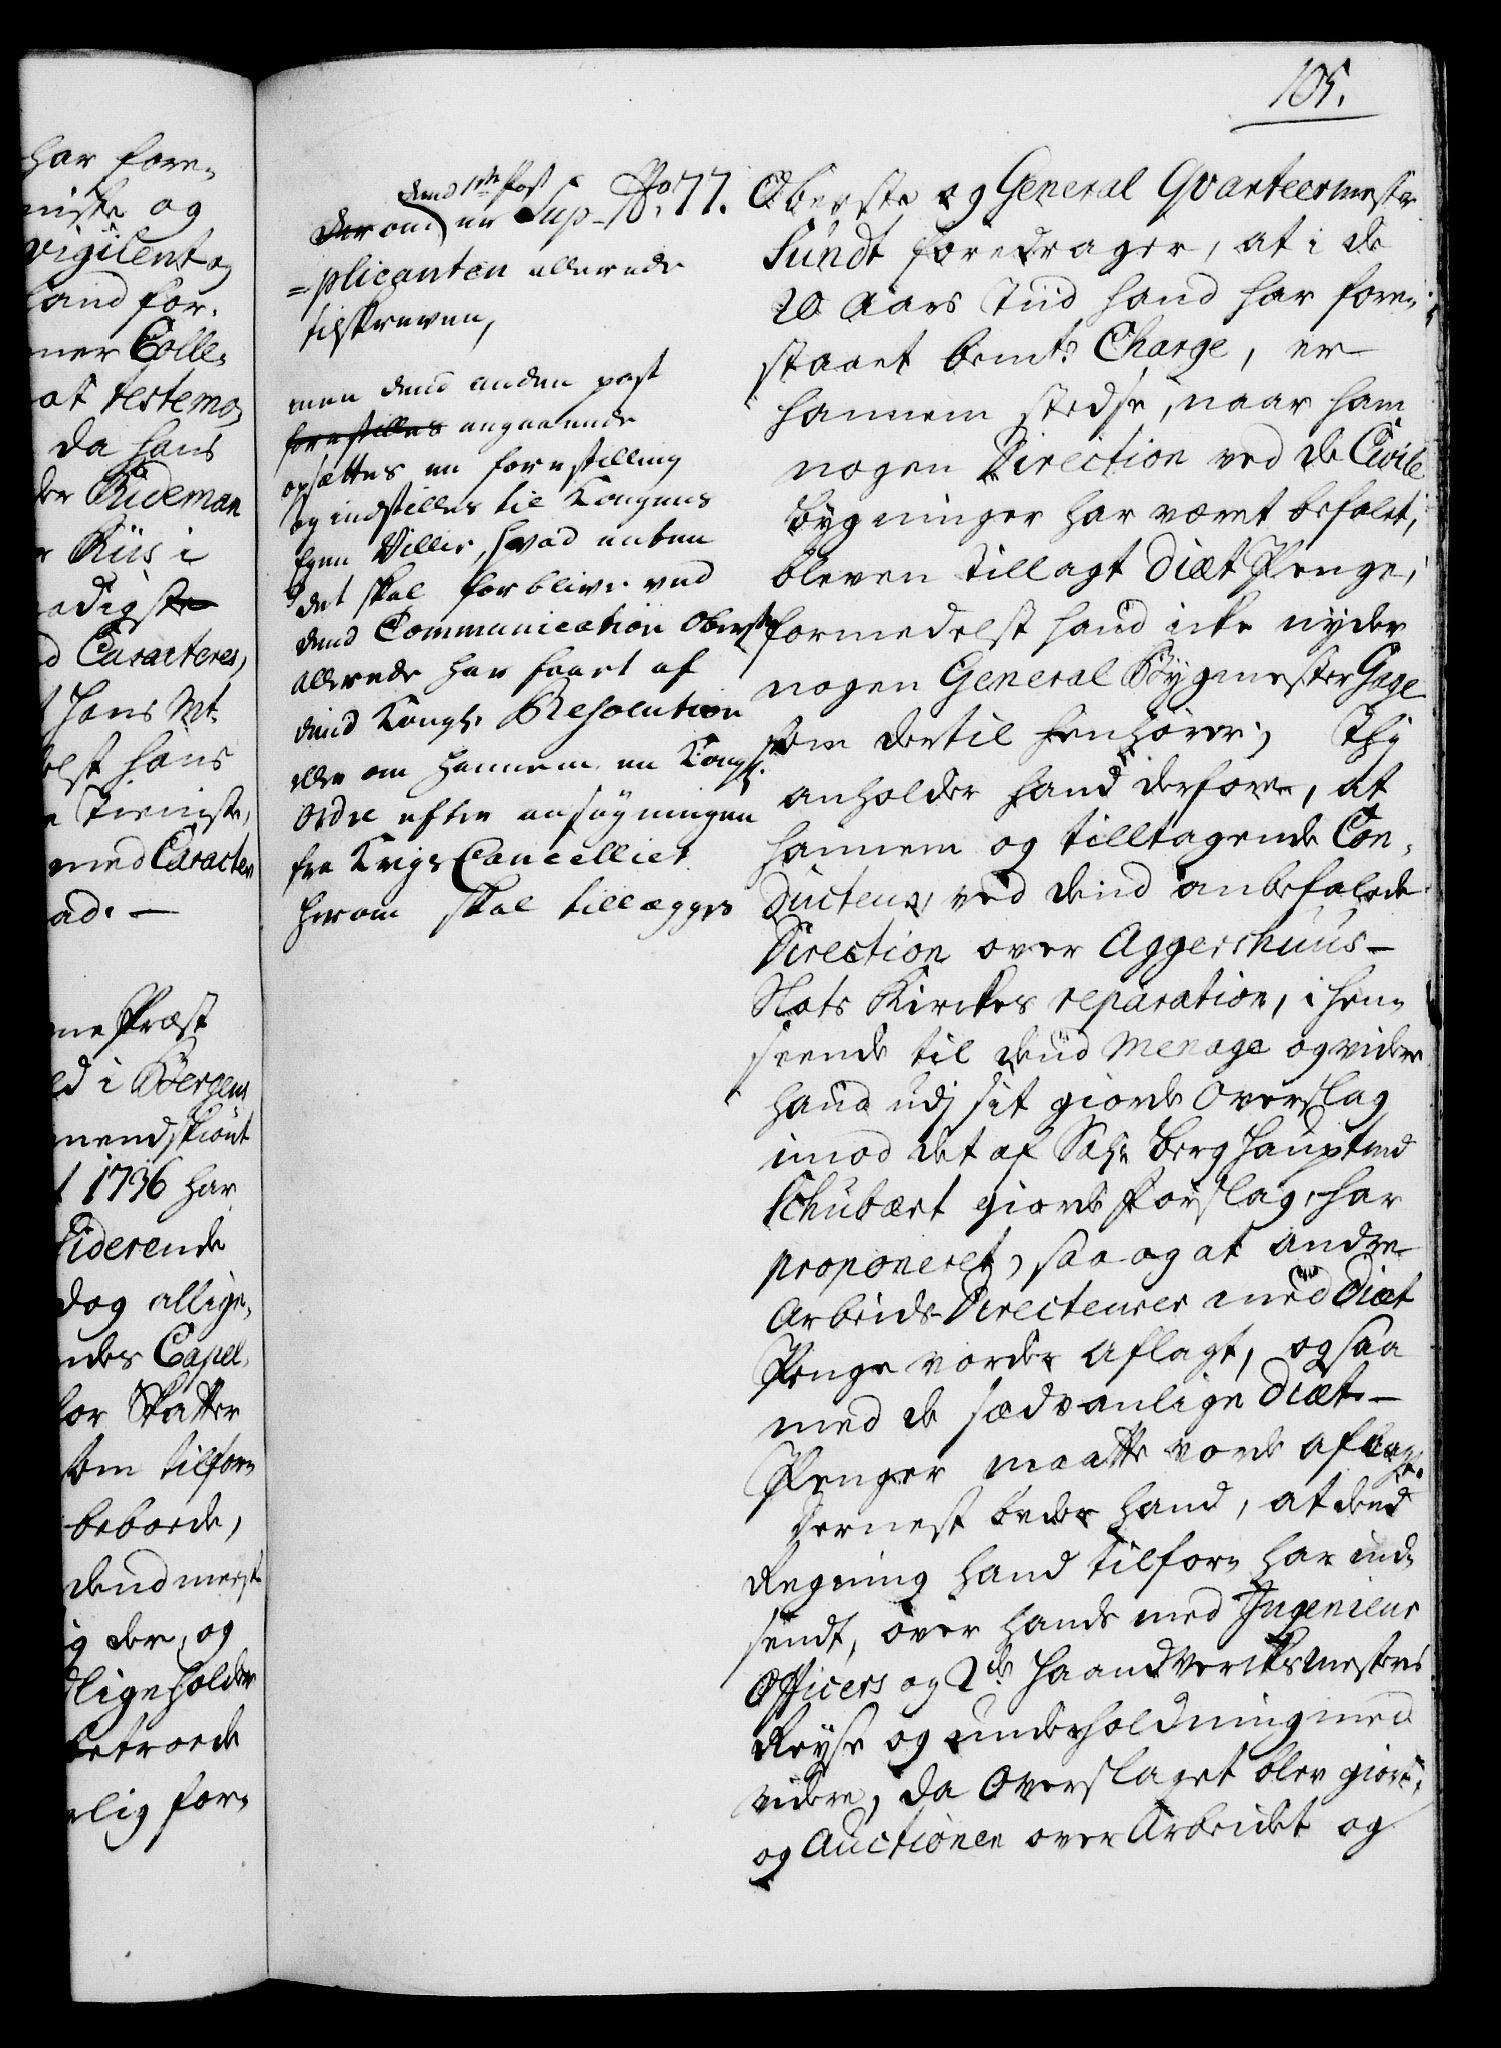 har fore¬
niste og
vigilent og
land for¬
ner Colle¬
at testemo¬
da hans
der Rideman
Riis i
adigste
d Caracteres,
t hans Mt.
elst hans
e Tieniste,
med Caracter
ad. —
ne Præst
ed i Bergens
mendskiönt
t 1736 har
siderende
dog allige¬
ndes Capel¬
for Skatter
som tilforn
beboede,
dend meeste
g der, og
ligeholder
betroede
rlig for¬
105.
dend 1ste Post
Derom er Sup¬ No. 77.
=plicanten allerede
tilskreven,
men dend anden post
forestilles angaaende
opsættes en forestilling
og indstilles til Kongens
Egen Villie, hvad enten
det skal forblive ved
dend Communication Oberste
allerede har faaet af
dend Kongl. Resolution
eller om hannem en Kongl.
Ordre efter ansøgningen
fra Krigs Cancelliet
herom skal tillægges
Oberste og General Qvarteermester
Sundt foredrager, at i de
20 Aars Tiid hand har fore¬
staaet bemte Charge, er
hannem stedse, naar ham
nogen Direction ved de Civile
bygninger har været befalet,
bleven tillagt Diæt Penge,
formedelst hand icke nyder
nogen General Bygmester Gage
som dertil henhører; Thj
anholder hand derfore, at
hannem og tilltagende Con¬
ducteur, ved dend anbefalede
Direction over Aggershuus —
Slots Kirckes reparation, i hen¬
seende til dend Menage og videre
hand udj sit giorde Overslag
imod det af Sahl. Berg Hauptmd
Schubært giorde Forslag, har
proponeret, saa og at andre
Arbeids Directeurer med Diæt
Penge vorder aflagt, ogsaa
med de sædvanlige Diæt —
Penger maatte vorde aflagt.
Dernest beder hand, at dend
Regning hand tilforn har ind¬
sendt, over hands med Ingenieur
Officers og 2de Haandvercksmesters
Reyse og underholdning med
videre, da Overslaget blev giort,
og Auctionen over Arbeidet og